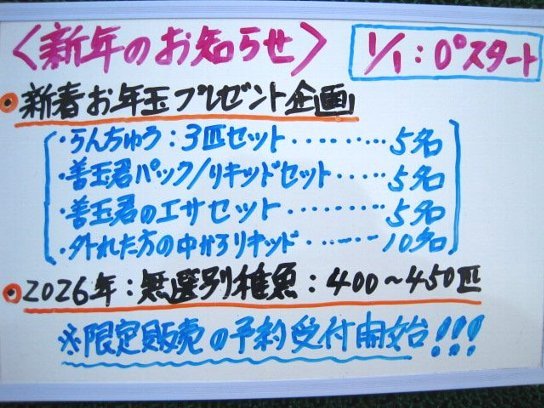 〈新年のお知らせ〉
1/1:0°スタート
新春お年玉プレゼント企画
・らんちゅう:3匹セット‥‥‥‥5名
・善玉君パック/リキッドセット‥‥‥5名
・善玉君のエサセット‥‥‥‥5名
・外れた方の中からリキッド‥‥‥10名
2026年:無選別稚魚:400〜450匹
※限定販売の予約受付開始!!!